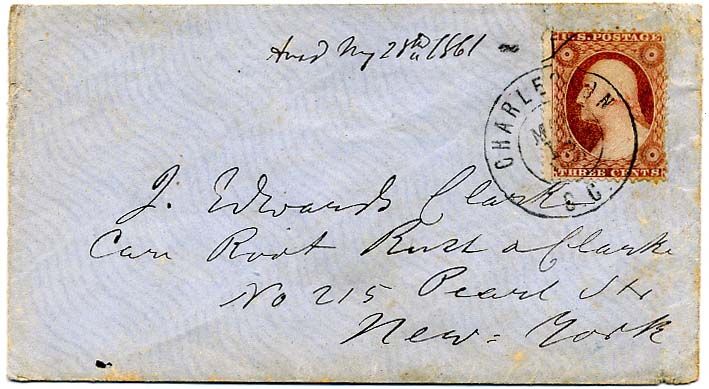 23th 1861
U.S. POSTAGE
THREE CENTS
CHARLESTON
S.C.
J. Edwards Clarke
Care Root Rust & Clarke
No 215 Pearl Str
New=York